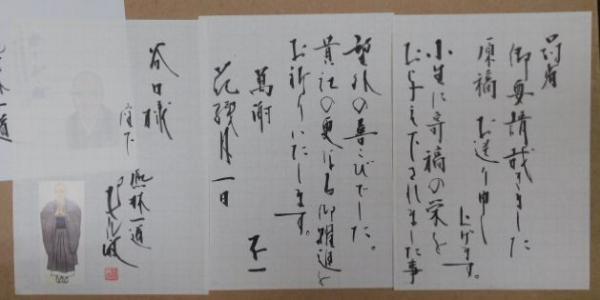 冠省
御要請戴きました
原稿 お送り申し
上げます。
小生に寄稿の栄を
お与え下されました事
望外の喜びでした。
貴社の更なる御躍進を
お祈りいたします。
萬謝
不一
月一日
谷口様
座下
林一道
林一道